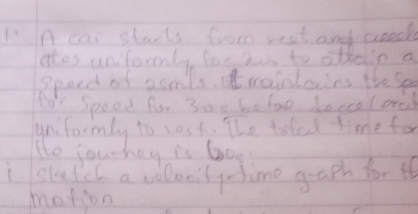 1. A car starts from rest and acceler
ates uniformly for 20s to attain a
speed of 25m/s. It maintains the
for speed for 30s before
uniformly to rest. The total time for
the journey is 60s.
i sketch a velocity-time graph for th
motion